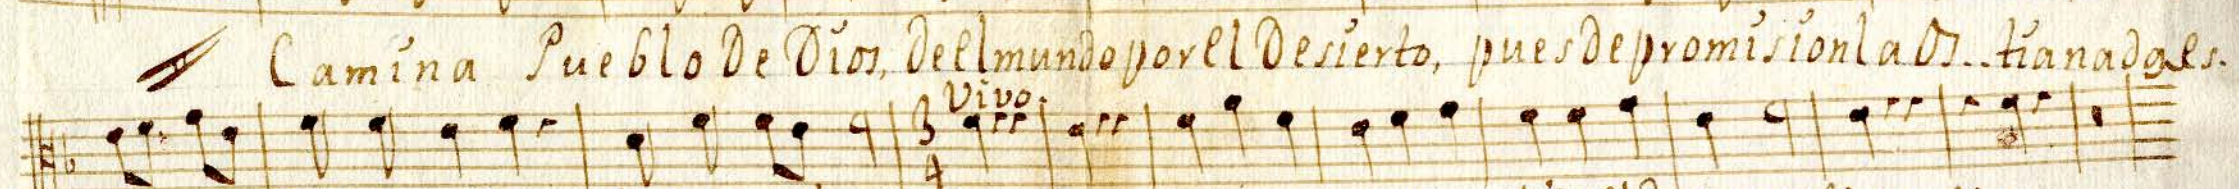 Camina Pueblo De Dios, De el mundo por el Desierto, pues De promision la Os..tia nada es.
Vivo.
3
4